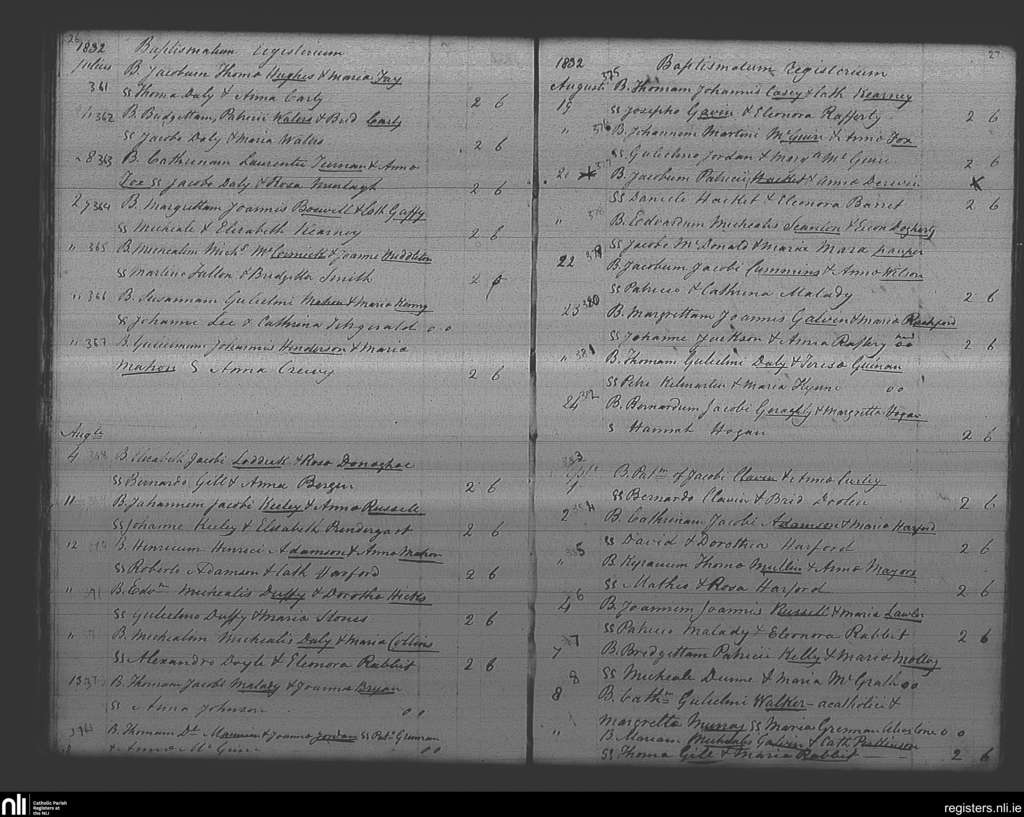 26
1832 Baptismatum Registerium
Julius B. Jacobum Thoma Hughes & Maria Fay
361 SS Thoma Daly & Anna Carty 2 6
362 B. Bridgettam, Patricii Waters & Brid Carty
SS Jacobo Daly & Maria Waters 2 6
8 363 B. Cathrinam Laurentii Tiernan & Anna
Fox SS Jacobo Daly & Rosa Murtagh 2 6
29 364 B. Margrettam Joannis Boswell & Cath Gaffy
SS Micheale & Elizabeth Kearney 2 6
" 365 B. Michealim Michs McCormick & Joanna Huddleston
SS Martino Fallon & Bridgetta Smith 2 6
" 366 B. Susannam Gulielmi & Maria Kenny
SS Johanne Lee & Cathrina Fitzgerald 0 0
" 367 B. Gulielmum Johannis Henderson & Maria
Mahon S Anna Creevy 2 6
Augts
4 368 B. Elizabeth Jacobi Lodduck & Rosa Donaghoe
SS Bernardo Gill & Anna Bergin 2 6
11 B. Johannem Jacobi Keeley & Anna Russell
SS Johanne Keeley & Elizabeth Prendergast 2 6
12 B. Henricum Henrici Adamson & Anna Mahon
SS Roberto Adamson & Cath Harford 2 6
" B. Edvm Michealis Duffy & Dorotha Hicks
SS Gulielmo Duffy & Maria Stones 2 6
" B. Michealem Michealis Daly & Maria Collins
SS Alexandro Doyle & Eleonora Rabbit 2 6
13 B. Thomam Jacobi Malady & Joanna Bryan
S Anna Johnson 0 0
B. Thomam Dl & Joanna Jordan SS Patt Guinan
& Anna McGuire 0 0
27
1832 Baptismatum Registerium
Augusti 375 B. Thomam Johannis Casey & Cath Kearney
19 SS Josepho Gavin & Eleonora Rafferty 2 6
" 376 B. Johannem Martini McGuire & Anna Fox
SS Gulielmo Jordan & Margt McGuire 2 6
21 377 B. Jacobum Patricii Hacket & Anna X
SS Daniele Hacket & Eleonora Barret 2 6
" 378 B. Edvardum Michealis Scanlon & Dogherty
SS Jacobo McDonald & Maria Mara pauper
22 379 B. Jacobum Jacobi Cummins & Anna Wilson
SS Patricio & Cathrina Malady 2 6
23 380 B. Margrettam Joannis Galvin & Maria Rochford
SS Johanne Jackson & Anna Raftery 2 6
" 381 B. Thomam Gulielmi Daly & Teresa Guinan
SS Petro Kilmartin & Maria Flynne 0 0
24 382 B. Bernardum Jacobi Geraghty & Margretta Hogan
S Hannah Hogan 2 6
383
7br 1 B. Patm of Jacobi Clavin & Anna Curley
SS Bernardo Clavin & Brid Doolin 2 6
2 384 B. Cathrinam Jacobi Adamson & Maria Harford
SS David & Dorothea Harford 2 6
" 385 B. Kyranum Thoma Mullin & Anna Mayors
SS Matheo & Rosa Harford 2 6
4 6 B. Joannem Joannis Russell & Maria Lawler
SS Patricio Malady & Eleonora Rabbit 2 6
7 7 B. Bridgettam Patricii Kelly & Maria Molloy
8 SS Micheale Dunne & Maria McGrath 0 0
8 B. Cathm Gulielmi Walker - acatholici &
Margretta Murray SS Maria Grennan 0 0
B. Mariam Michealis Galvin & Cath Parkinson
SS Thoma Gill & Maria Rabbit 2 6
nli
Catholic Parish
Registers at
the NLI
registers.nli.ie